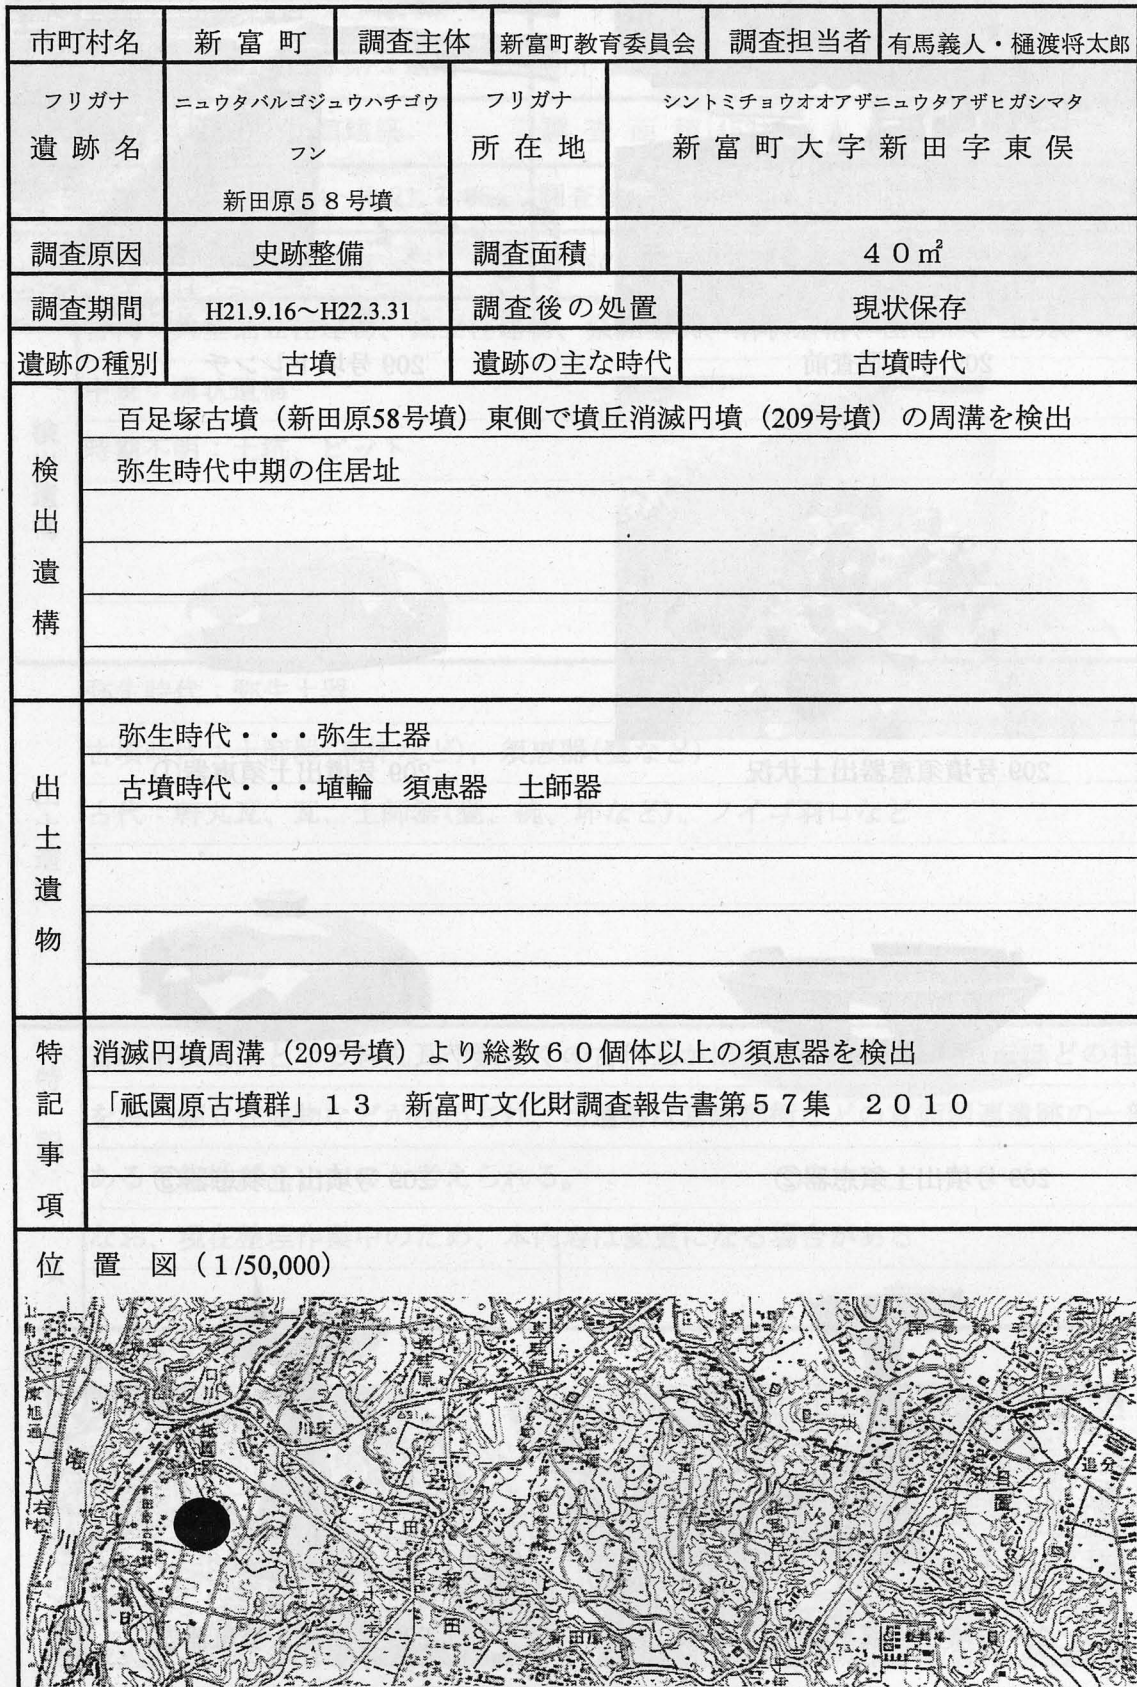 市町村名 新富町 調査主体 新富町教育委員会 調査担当者 有馬義人・樋渡将太郎
フリガナ ニュウタバルゴジュウハチゴウフン フリガナ シントミチョウオオアザニュウタアザヒガシマタ
遺跡名 新田原５８号墳 所在地 新富町大字新田字東俣
調査原因 史跡整備 調査面積 ４０㎡
調査期間 H21.9.16～H22.3.31 調査後の処置 現状保存
遺跡の種別 古墳 遺跡の主な時代 古墳時代
検出遺構
百足塚古墳（新田原58号墳）東側で墳丘消滅円墳（209号墳）の周溝を検出
弥生時代中期の住居址
出土遺物
弥生時代・・・弥生土器
古墳時代・・・埴輪　須恵器　土師器
特記事項
消滅円墳周溝（209号墳）より総数６０個体以上の須恵器を検出
「祇園原古墳群」１３　新富町文化財調査報告書第５７集　２０１０
位置図（1/50,000）
追分
新田原